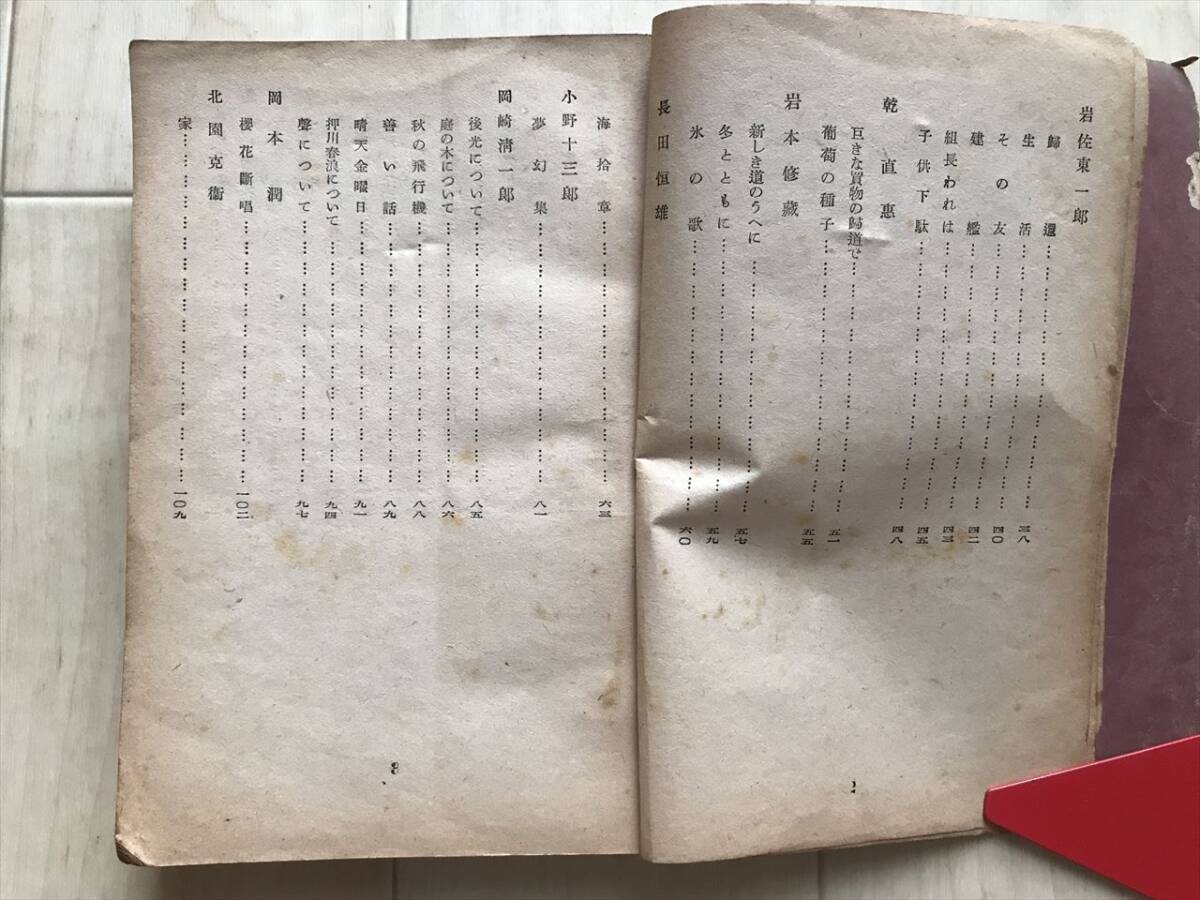 岩佐東一郎
歸還
生活……三八
その友……四〇
建艦……四二
組長われは……四三
子供下駄……四五
乾直惠……四八
巨きな買物の歸道で……五一
葡萄の種子
岩本修藏……五五
新しき道のうへに……五七
冬とともに……五九
氷の歌……六〇
長田恒雄
海拾章……六三
小野十三郎
夢幻集……八一
岡崎清一郎
後光について……八五
庭の木について……八六
秋の飛行機……八八
善い話……八九
晴天金曜日……九一
押川春浪について……九四
聲について……九七
岡本潤
櫻花斷唱……一〇二
北園克衞
家……一〇九
3